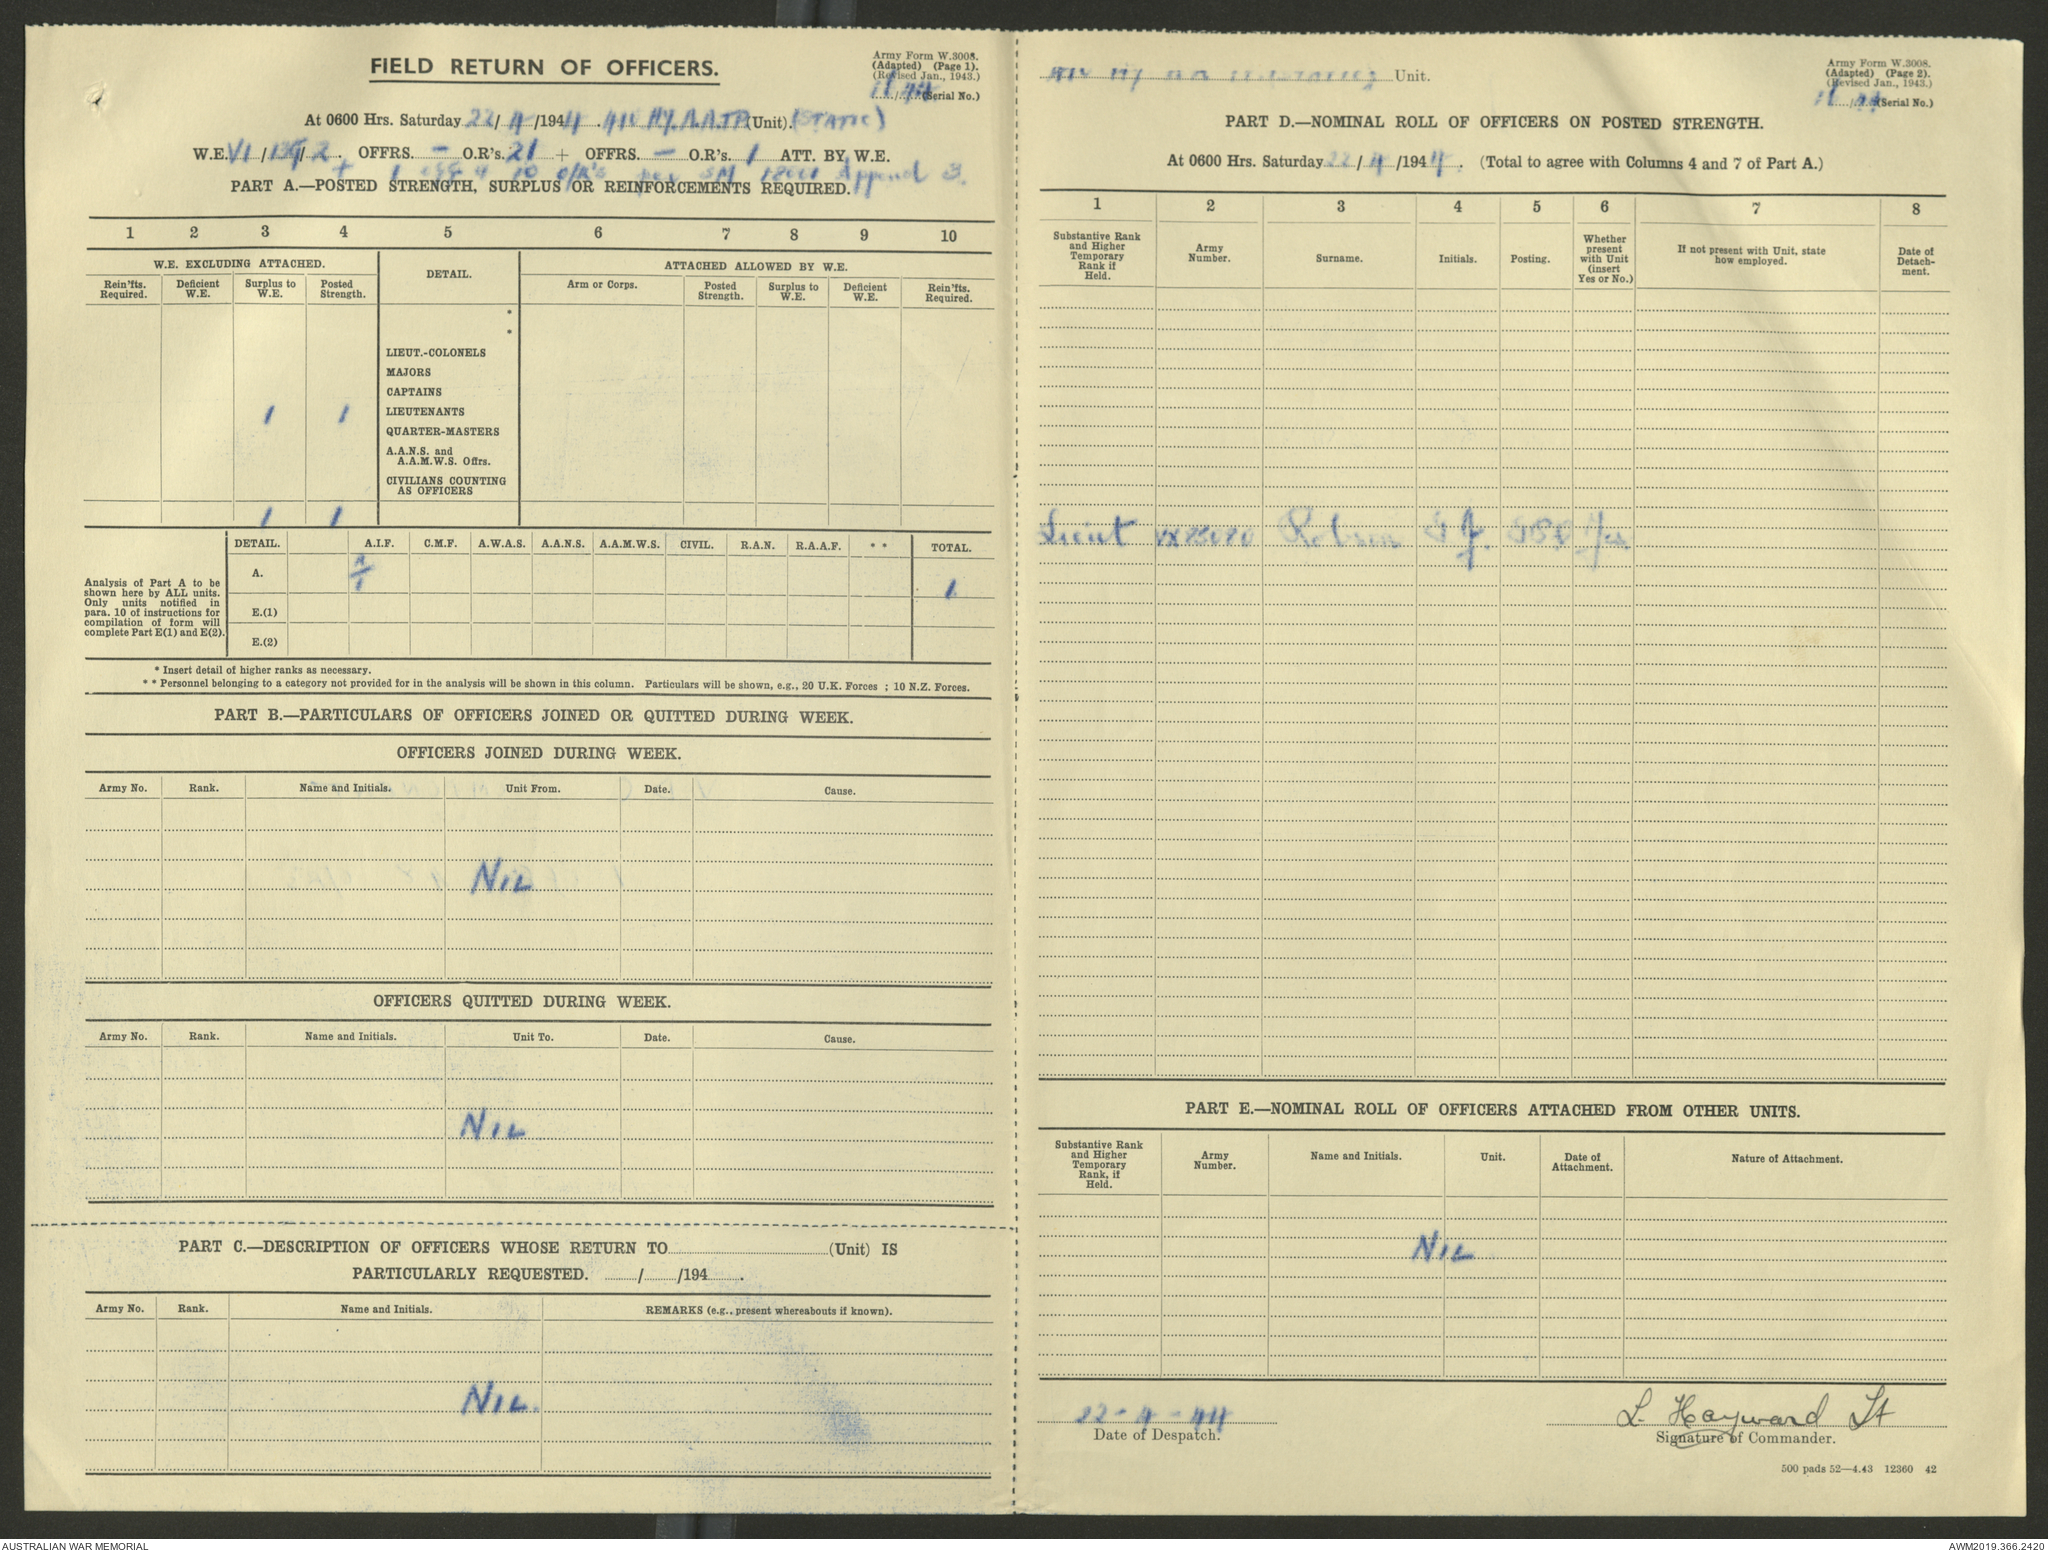 FIELD RETURN OF OFFICERS.
Army Form W.3008.
(Adapted) (Page 1).
(Revised Jan., 1943.)
(Serial No.)
At 0600 Hrs. Saturday 22/4/1944. Hy. A.A. (Unit). (STATIC)
W.E. VI/139/2. OFFRS. - O.R's. 21 + OFFRS. - O.R's. 1 ATT. BY W.E.
+ 1 10 O/R's per SM Append 3.
PART A.—POSTED STRENGTH, SURPLUS OR REINFORCEMENTS REQUIRED.
1 2 3 4 5 6 7 8 9 10
W.E. EXCLUDING ATTACHED. DETAIL. ATTACHED ALLOWED BY W.E.
Rein'fts. Required. Deficient W.E. Surplus to W.E. Posted Strength. Arm or Corps. Posted Strength. Surplus to W.E. Deficient W.E. Rein'fts. Required.
*
*
LIEUT.-COLONELS
MAJORS
CAPTAINS
1 1 LIEUTENANTS
QUARTER-MASTERS
A.A.N.S. and
A.A.M.W.S. Offrs.
CIVILIANS COUNTING
AS OFFICERS
1 1
DETAIL. A.I.F. C.M.F. A.W.A.S. A.A.N.S. A.A.M.W.S. CIVIL. R.A.N. R.A.A.F. * * TOTAL.
Analysis of Part A to be
shown here by ALL units.
Only units notified in
para. 10 of instructions for
compilation of form will
complete Part E(1) and E(2).
A. 1
E.(1)
E.(2)
* Insert detail of higher ranks as necessary.
* * Personnel belonging to a category not provided for in the analysis will be shown in this column. Particulars will be shown, e.g., 20 U.K. Forces ; 10 N.Z. Forces.
PART B.—PARTICULARS OF OFFICERS JOINED OR QUITTED DURING WEEK.
OFFICERS JOINED DURING WEEK.
Army No. Rank. Name and Initials. Unit From. Date. Cause.
NIL
OFFICERS QUITTED DURING WEEK.
Army No. Rank. Name and Initials. Unit To. Date. Cause.
NIL
PART C.—DESCRIPTION OF OFFICERS WHOSE RETURN TO (Unit) IS
PARTICULARLY REQUESTED. / /194 .
Army No. Rank. Name and Initials. REMARKS (e.g., present whereabouts if known).
NIL.
Unit.
Army Form W.3008.
(Adapted) (Page 2).
(Revised Jan., 1943.)
(Serial No.)
PART D.—NOMINAL ROLL OF OFFICERS ON POSTED STRENGTH.
At 0600 Hrs. Saturday 22/4/1944. (Total to agree with Columns 4 and 7 of Part A.)
1 2 3 4 5 6 7 8
Substantive Rank and Higher Temporary Rank if Held. Army Number. Surname. Initials. Posting. Whether present with Unit (insert Yes or No.) If not present with Unit, state how employed. Date of Detachment.
Lieut Yes
PART E.—NOMINAL ROLL OF OFFICERS ATTACHED FROM OTHER UNITS.
Substantive Rank and Higher Temporary Rank, if Held. Army Number. Name and Initials. Unit. Date of Attachment. Nature of Attachment.
NIL
22-4-44
Date of Despatch.
L. Hayward Lt
Signature of Commander.
500 pads 52—4.43 12360 42
AUSTRALIAN WAR MEMORIAL
AWM2019.366.2420